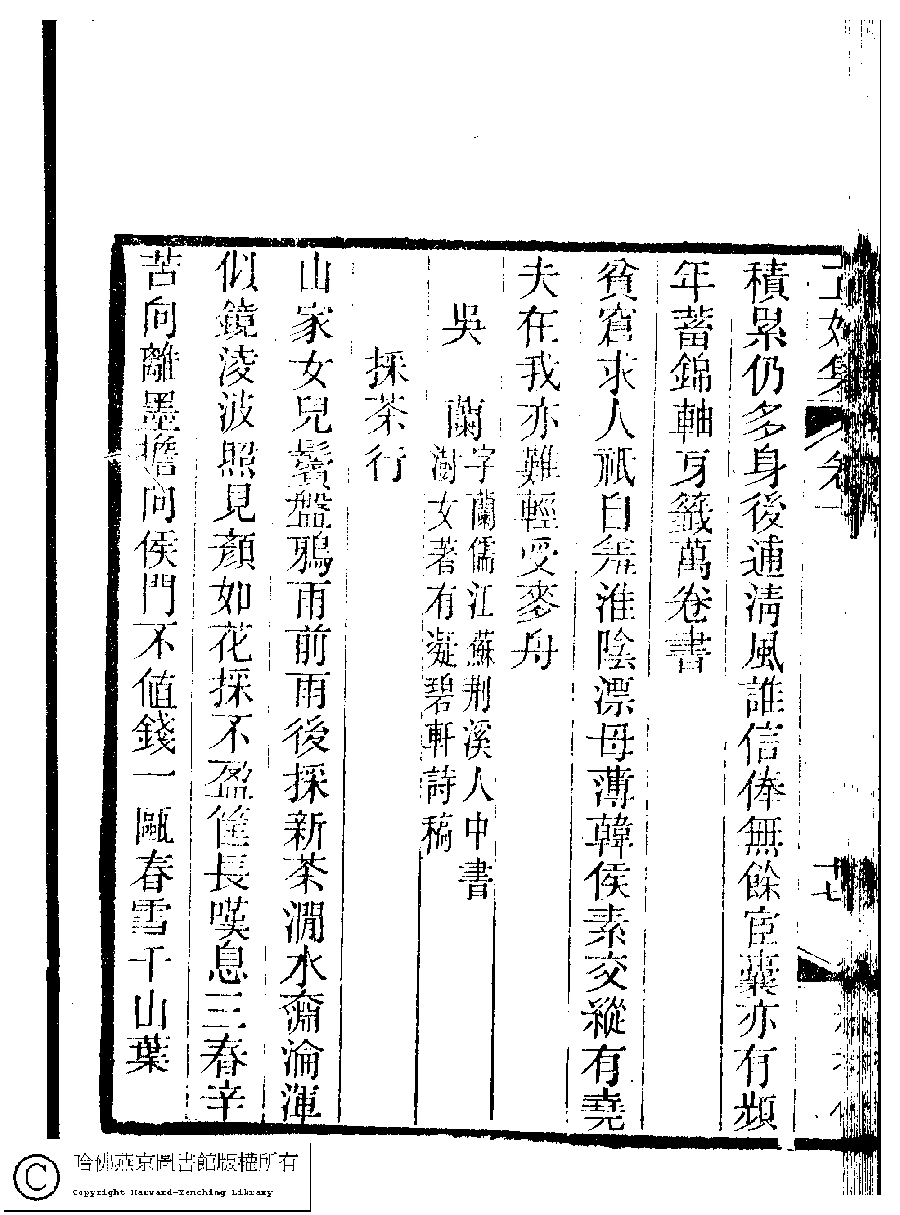 積累仍多身後逋淸風誰信俸無餘宦囊亦有頻
年蓄錦軸牙籤萬卷書
貧窘求人祇自羞淮陰漂母薄韓侯素交縱有堯
夫在我亦難輕受麥舟
吳　蘭字蘭儒江蘇荆溪人中書
澍女著有凝碧軒詩稿
採茶行
山家女兒鬢盤鴉雨前雨後採新茶澗水奫淪渾
似鏡淩波照見顏如花採不盈筐長嘆息三春辛
苦向離墨擔向侯門不値錢一甌春雪千山葉
哈佛燕京圖書館版權所有
Copyright Harvard-Yenching Library